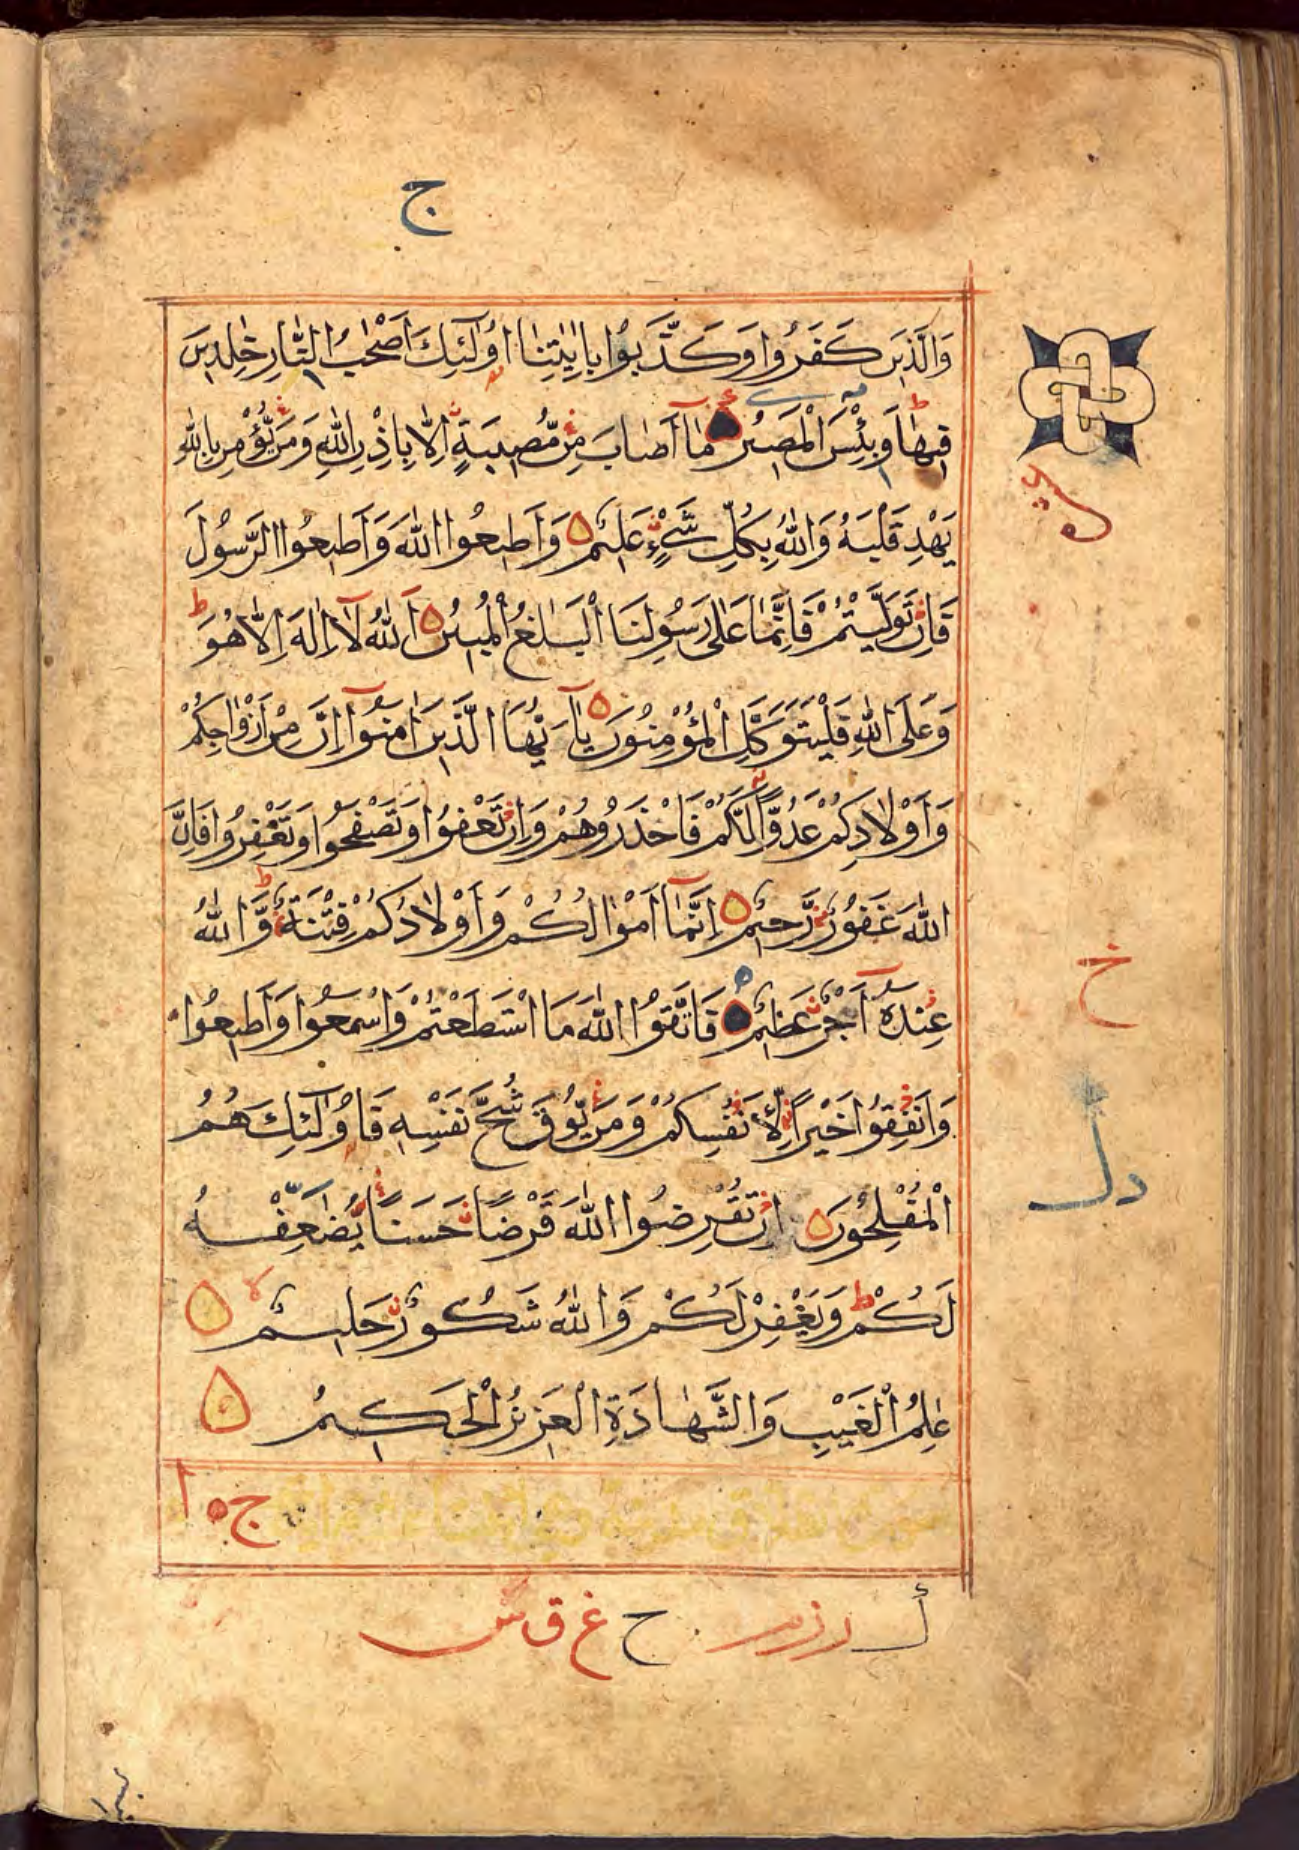 ج
وَالَّذِينَ كَفَرُوا وَكَذَّبُوا بِاٰيٰتِنَا اُولٰٓئِكَ اَصْحٰبُ النَّارِ خٰلِدِينَ
فِيهَا وَبِئْسَ الْمَصِيرُ مَٓا اَصَابَ مِنْ مُّصِيبَةٍ اِلَّا بِاِذْنِ اللّٰهِ وَمَنْ يُّؤْمِنْ بِاللّٰهِ
يَهْدِ قَلْبَهُ وَاللّٰهُ بِكُلِّ شَيْءٍ عَلِيمٌ وَاَطِيعُوا اللّٰهَ وَاَطِيعُوا الرَّسُولَ
فَاِنْ تَوَلَّيْتُمْ فَاِنَّمَا عَلٰى رَسُولِنَا الْبَلٰغُ الْمُبِينُ اَللّٰهُ لَٓا اِلٰهَ اِلَّا هُوَ ط
وَعَلَى اللّٰهِ فَلْيَتَوَكَّلِ الْمُؤْمِنُونَ يَٓا اَيُّهَا الَّذِينَ اٰمَنُٓوا اِنَّ مِنْ اَزْوَاجِكُمْ
وَاَوْلَادِكُمْ عَدُوًّا لَّكُمْ فَاحْذَرُوهُمْ وَاِنْ تَعْفُوا وَتَصْفَحُوا وَتَغْفِرُوا فَاِنَّ
اللّٰهَ غَفُورٌ رَّحِيمٌ اِنَّمَٓا اَمْوَالُكُمْ وَاَوْلَادُكُمْ فِتْنَةٌ ط وَّاللّٰهُ
عِنْدَهُٓ اَجْرٌ عَظِيمٌ فَاتَّقُوا اللّٰهَ مَا اسْتَطَعْتُمْ وَاسْمَعُوا وَاَطِيعُوا
وَاَنْفِقُوا خَيْرًا لِّاَنْفُسِكُمْ وَمَنْ يُّوقَ شُحَّ نَفْسِهِ فَاُولٰٓئِكَ هُمُ
الْمُفْلِحُونَ اِنْ تُقْرِضُوا اللّٰهَ قَرْضًا حَسَنًا يُّضٰعِفْهُ
لَكُمْ ط وَيَغْفِرْ لَكُمْ وَاللّٰهُ شَكُورٌ حَلِيمٌ لا
عٰلِمُ الْغَيْبِ وَالشَّهَادَةِ الْعَزِيزُ الْحَكِيمُ
خ
ح غ ق س